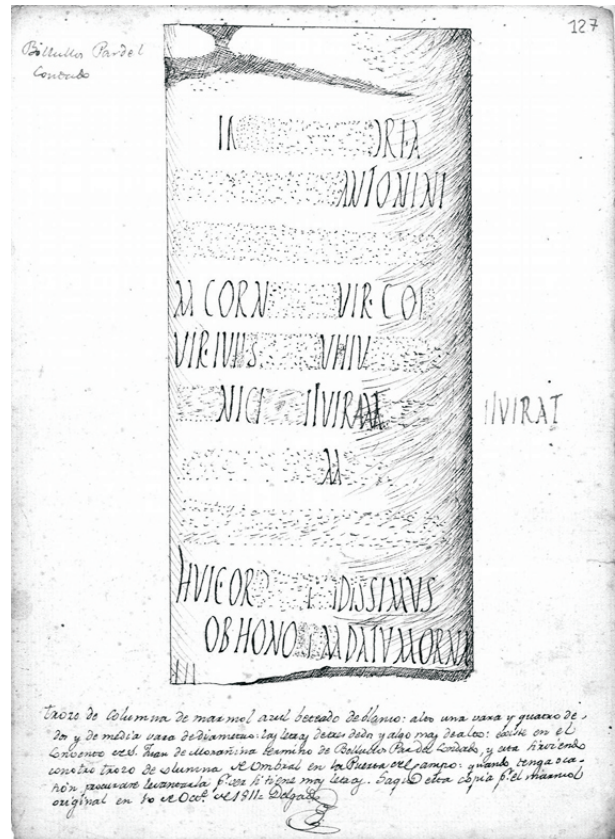 127
Bollullos Par del
Condado
IN ORIA
ANTONINI
M CORN VIR·COI
VIR·IVI S. VHIV
NICI IIVIRAM IIVIRAT
M
HVIC OR I IDISSIMVS
OB HONO I M DATVM ORN
III
trozo de columna de marmol azul beteado de blanco: alto una vara y quatro de-
dos y de media vara de diametro: las letras de tres dedos y algo mas de alto: existe en el
Convento de S. Juan de Morañina termino de Bollullos Par del Condado, y esta sirviendo
con otro trozo de columna de Ombral en la Puerta del campo: quando tenga oca-
sion procurare levantarla p.ª ver si tiene mas letras. Saqué esta copia p.r el marmol
original en 10 de Oct.e de 1811= Delgado